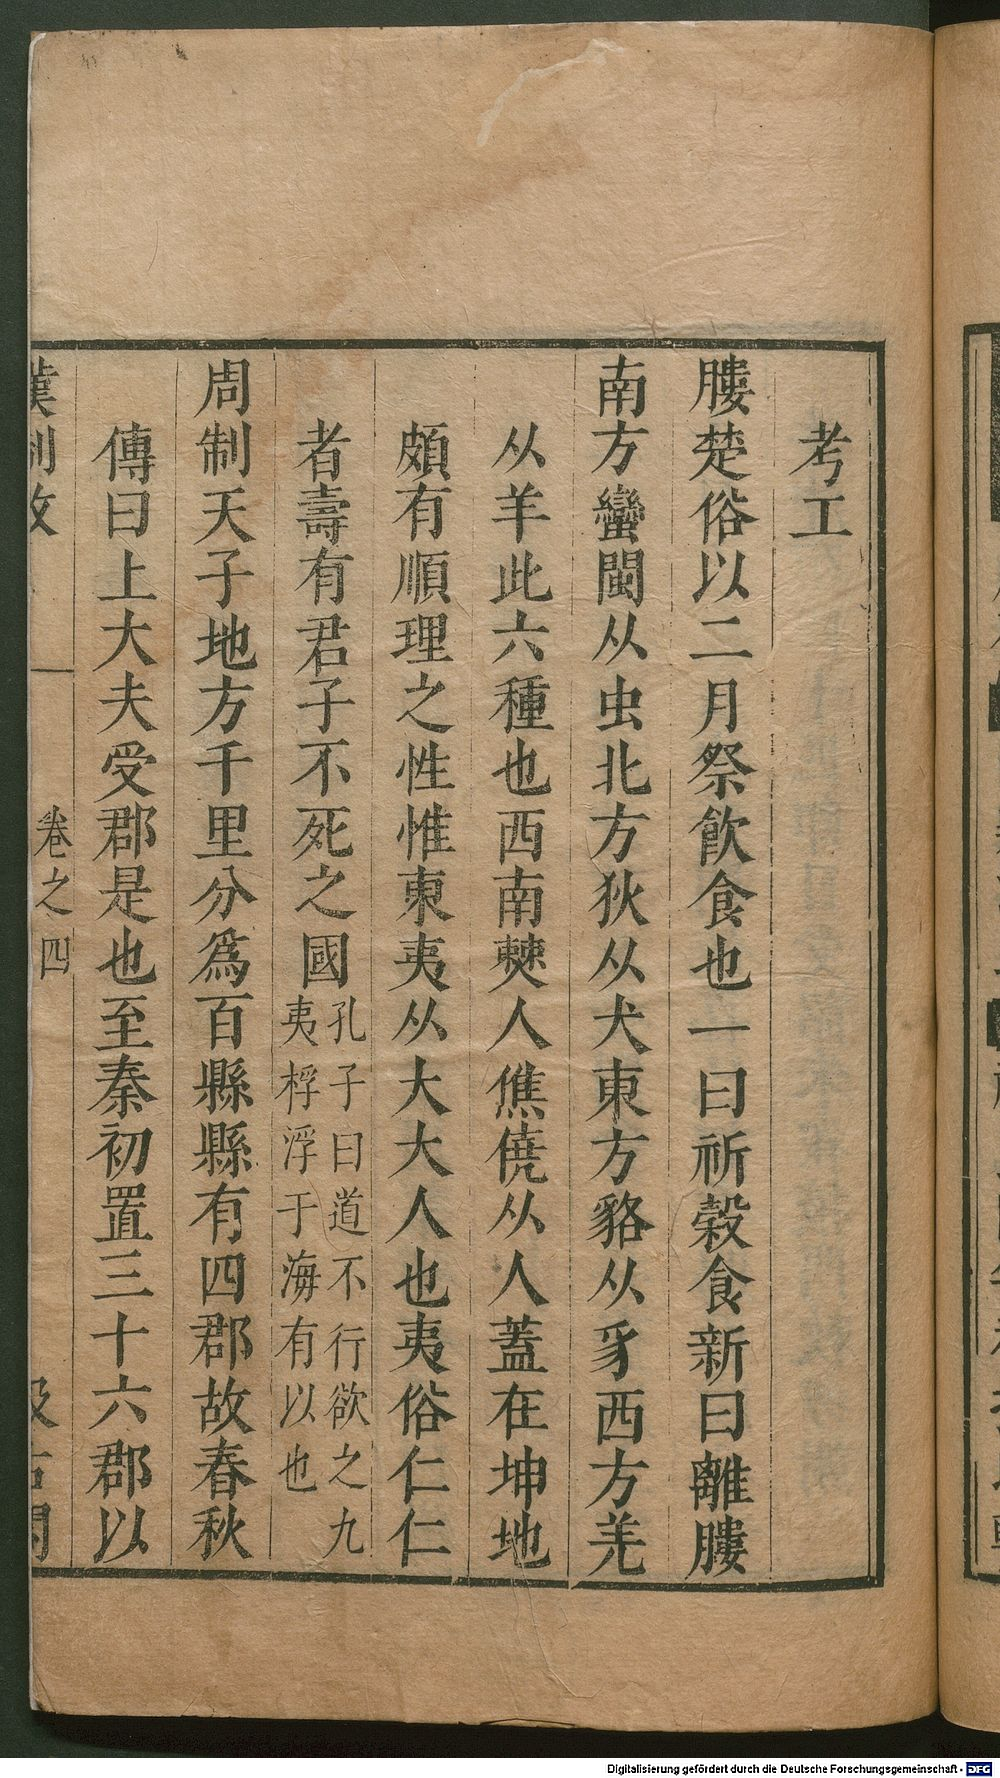 考工
膢楚俗以二月祭飲食也一曰祈穀食新曰離膢
南方蠻閩从虫北方狄从犬東方貉从豸西方羌
从羊此六種也西南僰人僬僥从人蓋在坤地
頗有順理之性惟東夷从大大人也夷俗仁仁
者壽有君子不死之國
孔子曰道不行欲之九
夷桴浮于海有以也
周制天子地方千里分爲百縣縣有四郡故春秋
傳曰上大夫受郡是也至秦初置三十六郡以
漢制攷
卷之四
汲古閣
Digitalisierung gefördert durch die Deutsche Forschungsgemeinschaft - DFG